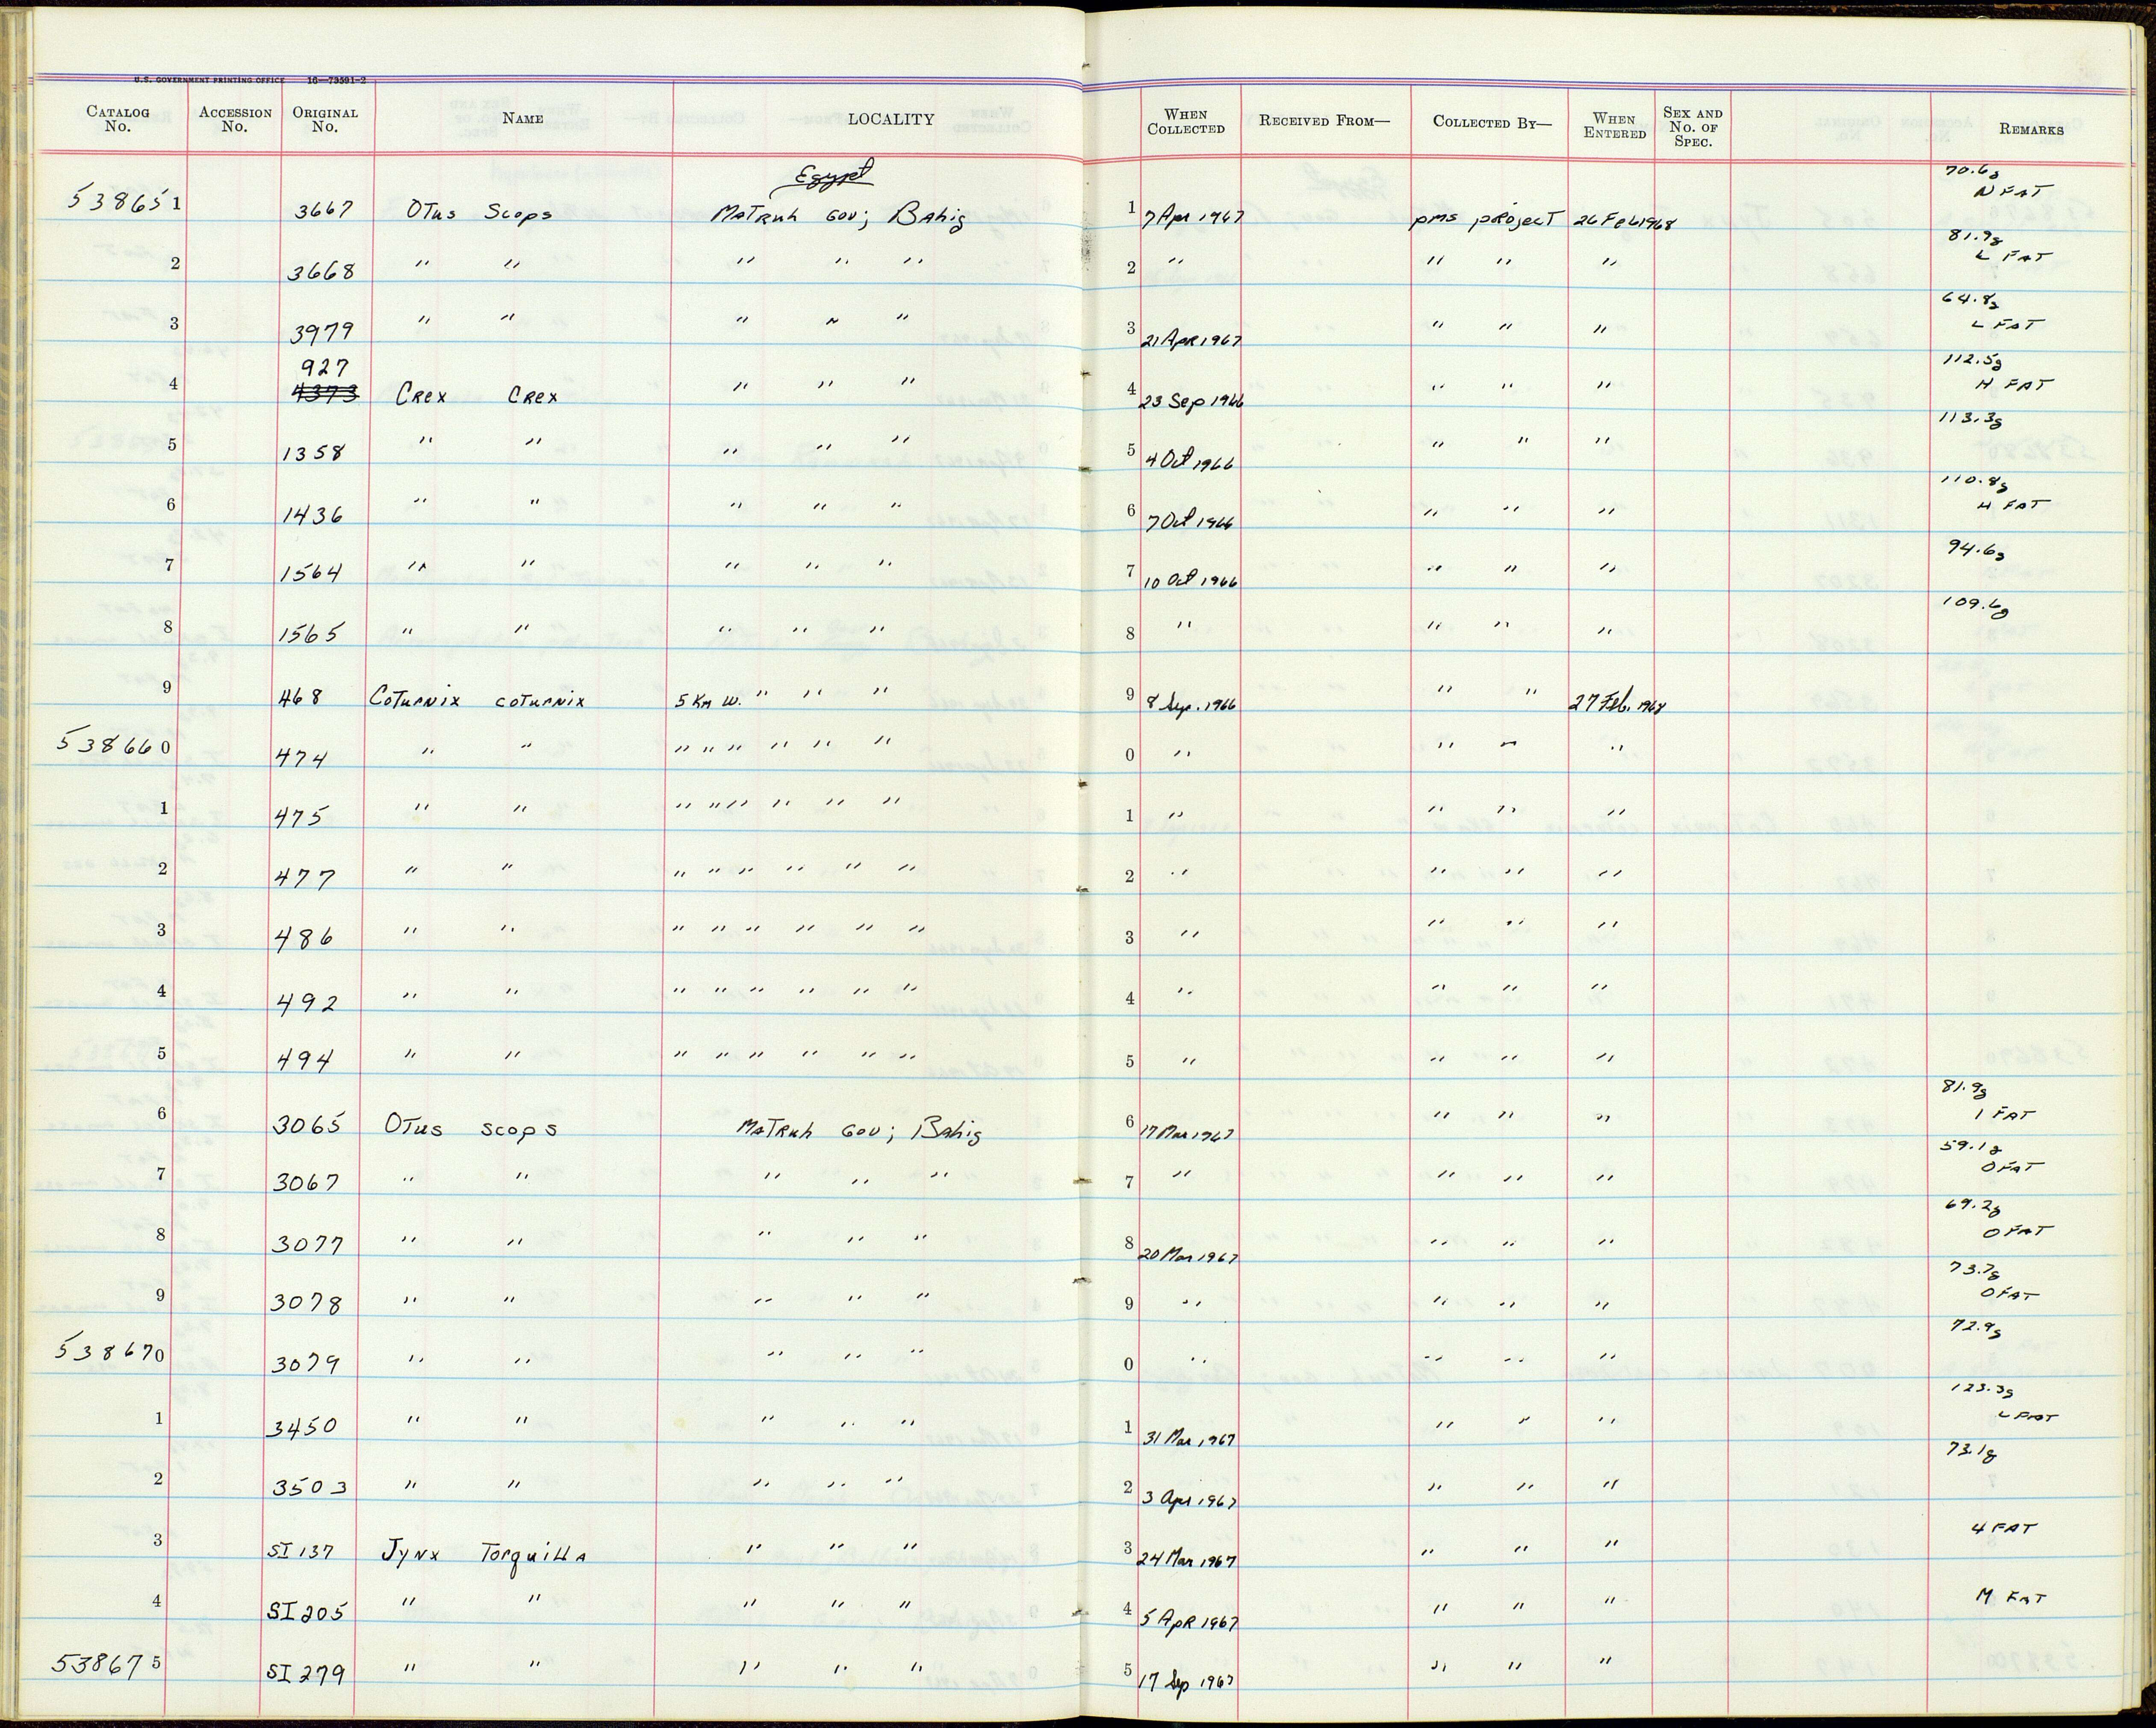 U.S. GOVERNMENT PRINTING OFFICE 16—73591-2
CATALOG No. ACCESSION No. ORIGINAL No. NAME LOCALITY WHEN COLLECTED RECEIVED FROM— COLLECTED BY— WHEN ENTERED SEX AND No. OF SPEC. REMARKS
Egypt
538651 3667 Otus Scops Matruh Gov; Bahig 1 7 Apr 1967 pms project 26 Feb 1968 70.6g N FAT
2 3668 " " " " " 2 " " " " 81.9g L FAT
3 3979 " " " " " 3 21 Apr 1967 " " " 64.8g L FAT
4 927 4373 Crex Crex " " " 4 23 Sep 1966 " " " 112.5g H FAT
5 1358 " " " " " 5 4 Oct 1966 " " " 113.3g
6 1436 " " " " " 6 7 Oct 1966 " " " 110.8g H FAT
7 1564 " " " " " 7 10 Oct 1966 " " " 94.6g
8 1565 " " " " " 8 " " " " 109.6g
9 468 Coturnix coturnix 5 Km W. " " " 9 8 Sep. 1966 " " 27 Feb. 1968
538660 474 " " " " " " " " 0 " " " "
1 475 " " " " " " " " 1 " " " "
2 477 " " " " " " " " 2 " " " "
3 486 " " " " " " " " 3 " " " "
4 492 " " " " " " " " 4 " " " "
5 494 " " " " " " " " 5 " " " "
6 3065 Otus scops Matruh Gov; Bahig 6 17 Mar 1967 " " " 81.9g 1 FAT
7 3067 " " " " " 7 " " " " 59.1g 0 FAT
8 3077 " " " " " 8 20 Mar 1967 " " " 69.2g 0 FAT
9 3078 " " " " " 9 " " " " 73.7g 0 FAT
538670 3079 " " " " " 0 " " " " 72.9g
1 3450 " " " " " 1 31 Mar 1967 " " " 123.3g L FAT
2 3503 " " " " " 2 3 Apr 1967 " " " 73.1g
3 SI 137 Jynx Torquilla " " " 3 24 Mar 1967 " " " 4 FAT
4 SI 205 " " " " " 4 5 Apr 1967 " " " M FAT
538675 SI 279 " " " " " 5 17 Sep 1967 " " "